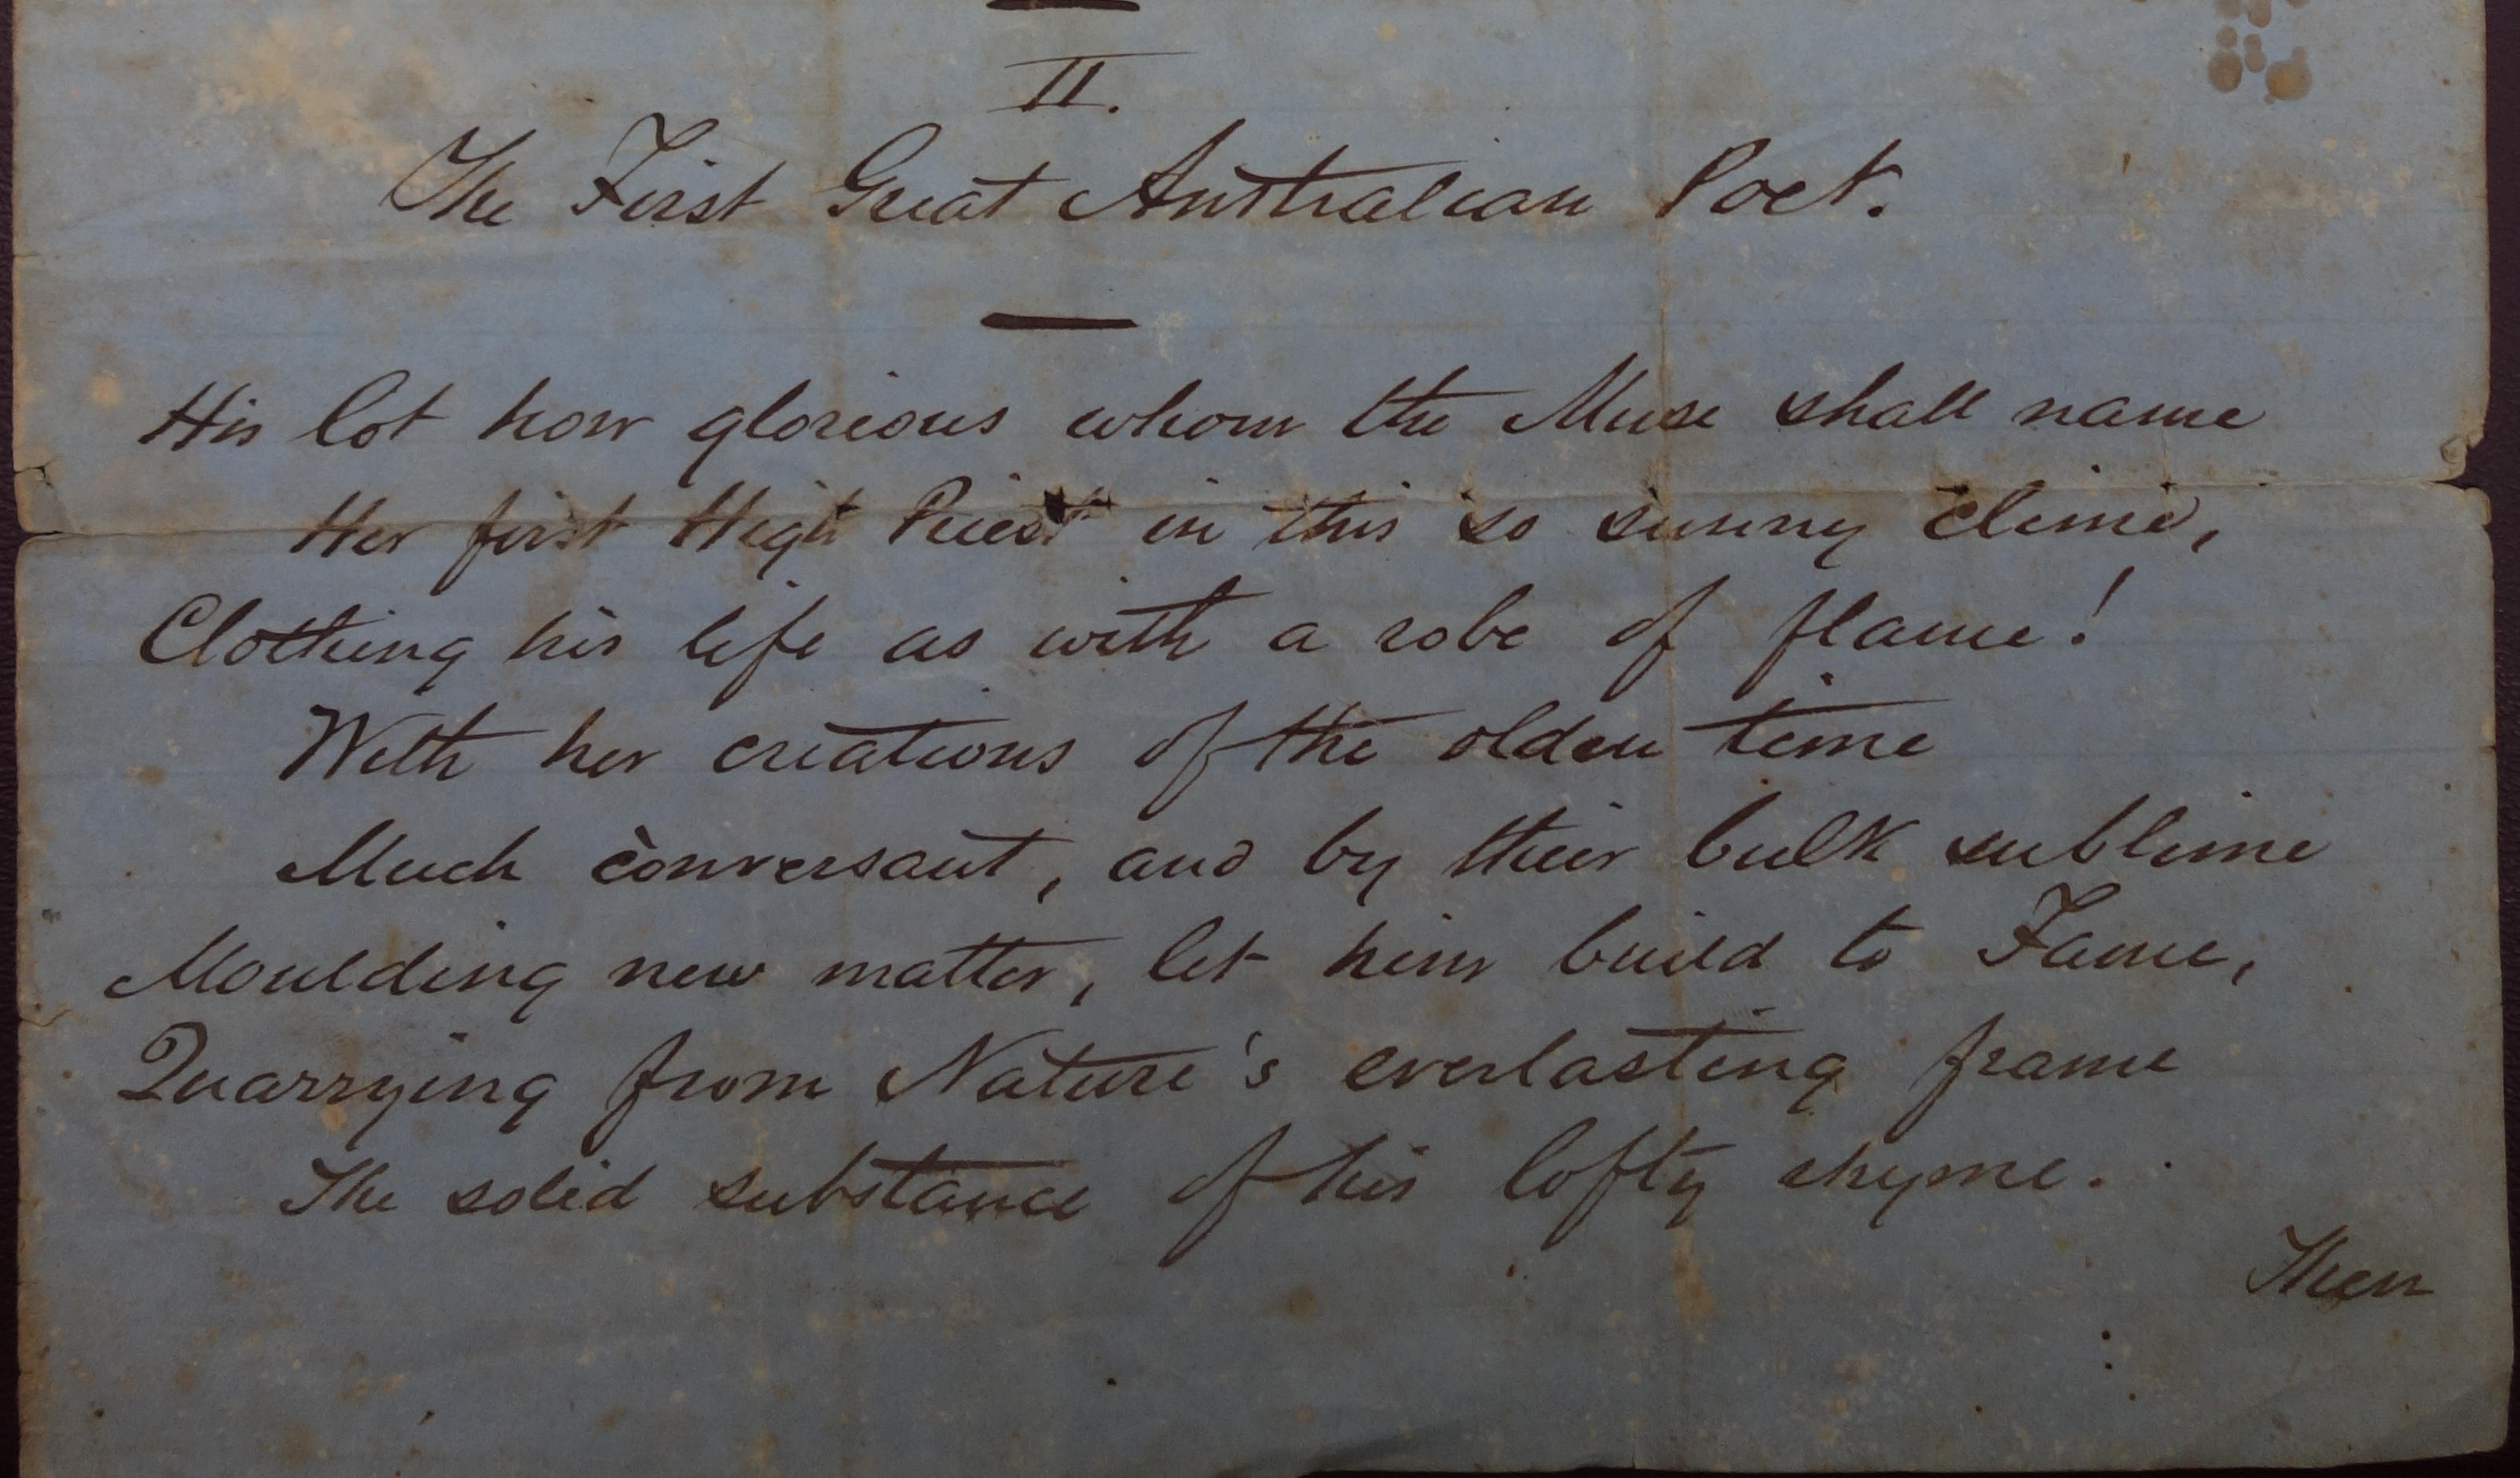 II.
The First Great Australian Poet.
His lot how glorious whom the Muse shall name
Her first High Priest in this so sunny clime,
Clothing his life as with a robe of flame!
With her creations of the olden time
Much conversant, and by their bulk sublime
Moulding new matter, let him build to Fame,
Quarrying from Nature's everlasting frame
The solid substance of his lofty rhyme.
Then